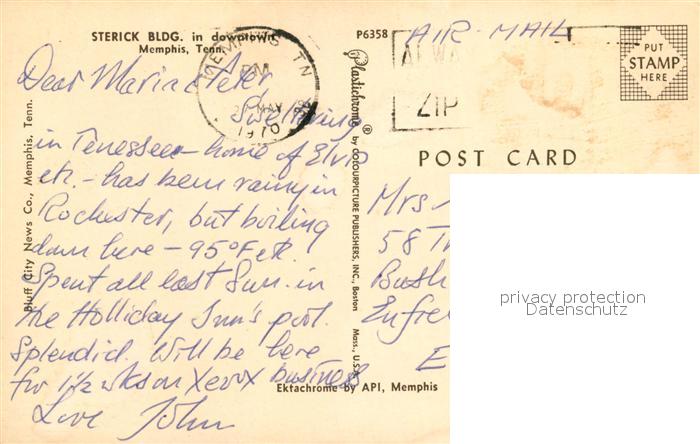 STERICK BLDG. in downtown
Memphis, Tenn.
P6358
AIR MAIL
MEMPHIS TN
PM
MAY
1970
ZIP
PUT
STAMP
HERE
POST CARD
Dear Maria & Peter,
Sweltering
in Tenessee – home of Elvis
etc. – has been rainy in
Rochester, but boiling
down here – 95°F etc.
Spent all last Sun. in
the Holliday Inn's pool.
Splendid. Will be here
for 1½ wks on Xerox business
Love John
Bluff City News Co., Memphis, Tenn.
Plastichrome ® by COLOURPICTURE PUBLISHERS, INC., Boston Mass., U.S.A.
Ektachrome by API, Memphis
Mrs
58
Bush
privacy protection
Datenschutz